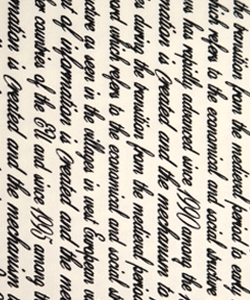 the transition from the medieval period to early
which refers to the economical and social structure
has rapidly advanced since 1990 among the
is Created and the mechanism to
during the transition from the medieval period
which refers to the economical and social
as seen in the villages in most European
of information is Created and the
countries of the EU and since 1995 among
is Created and the mechanism